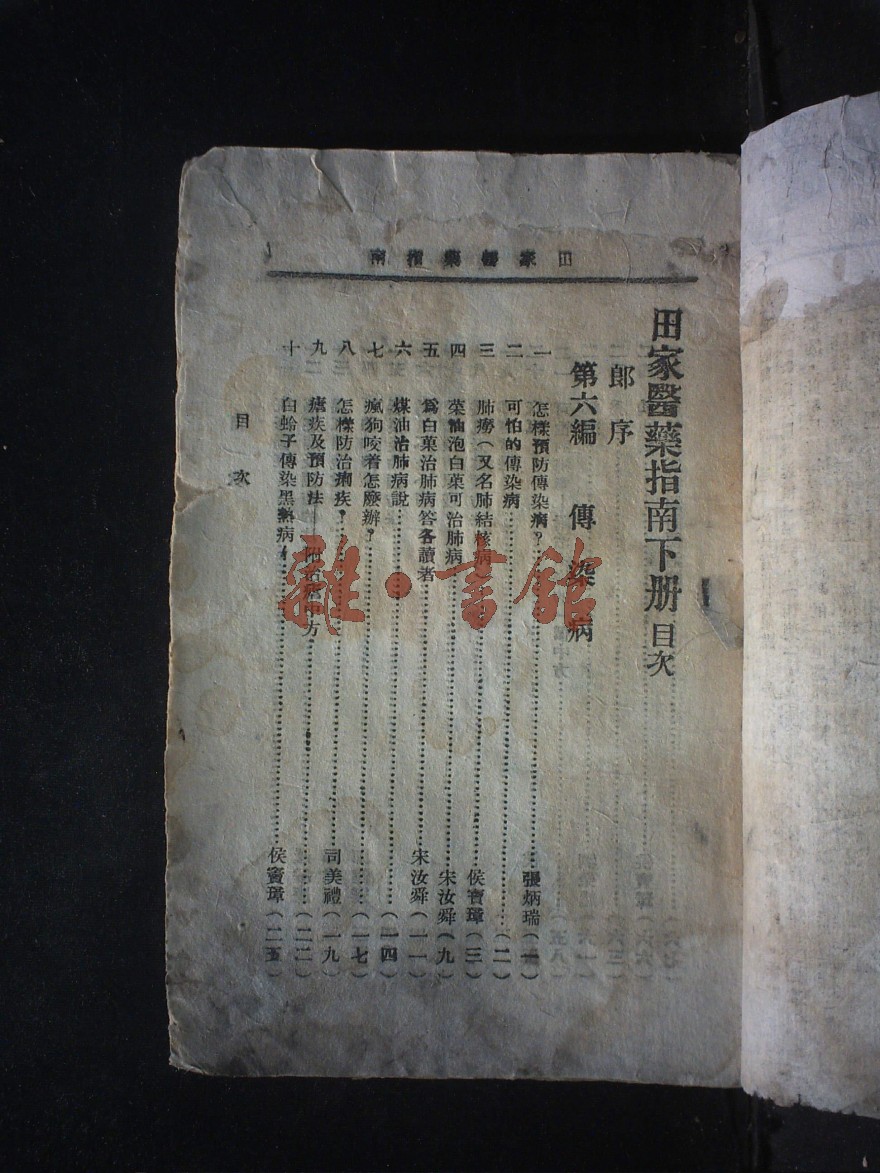 田家醫藥指南
田家醫藥指南下册 目次
郎序
第六編 傳染病
一 怎樣預防傳染病?……張炳瑞(一)
二 可怕的傳染病……(二)
三 肺癆(又名肺結核病)……侯寶璋(三)
四 菜油泡白菓可治肺病……宋汝舜(九)
五 爲白菓治肺病答各讀者……宋汝舜(一一)
六 煤油治肺病說……(一四)
七 瘋狗咬着怎麽辦?……(一七)
八 怎樣防治痢疾?……司美禮(一九)
九 瘧疾及預防法——附治瘧中方……(二二)
十 白蛉子傳染黑熱病……侯寶璋(二五)
目次
雜·書館